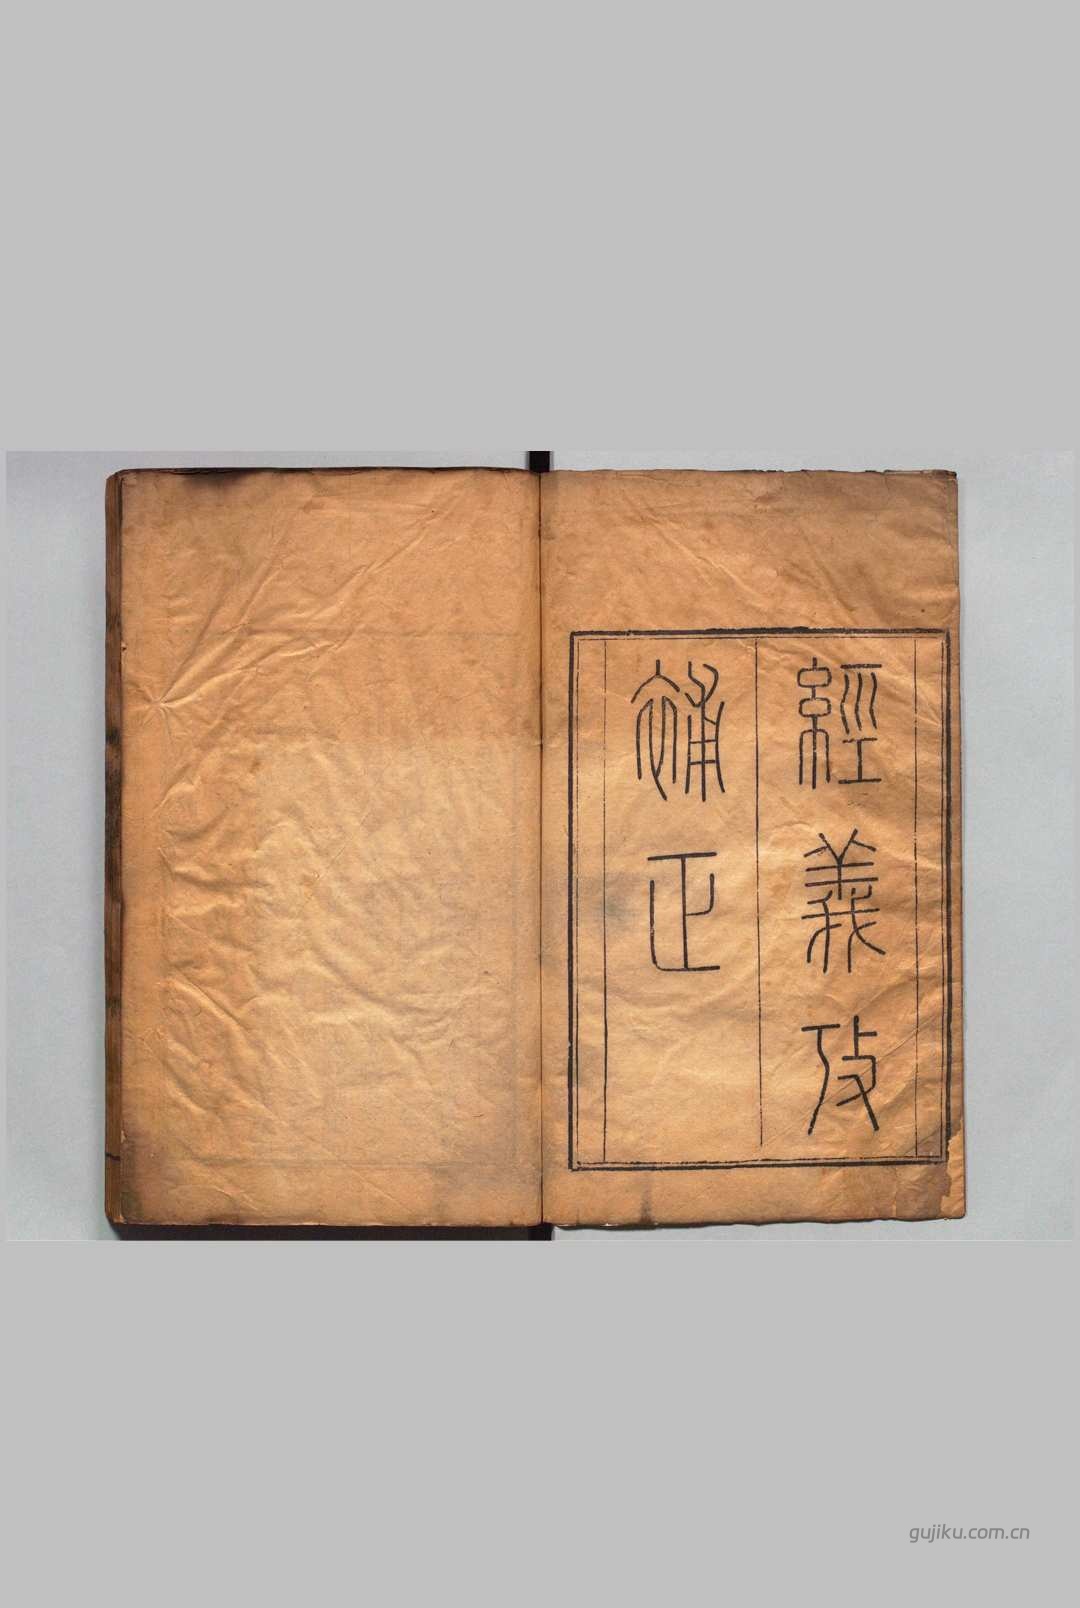 經義攷
補正
gujiku.com.cn